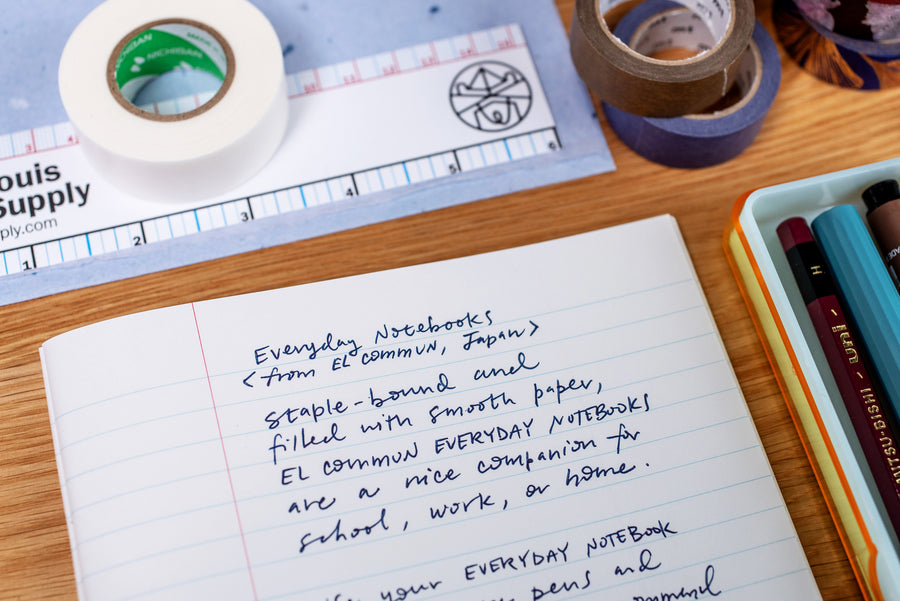 NICHIBAN
3
4
ouis
Supply
ply.com
1
2
3
4
5
6
Everyday Notebooks
<from EL COMMUN, Japan>
staple-bound and
filled with smooth paper,
EL COMMUN EVERYDAY NOTEBOOKS
are a nice companion for
school, work, or home.
your EVERYDAY NOTEBOOK
pens and
H
uni
MITSU-BISHI